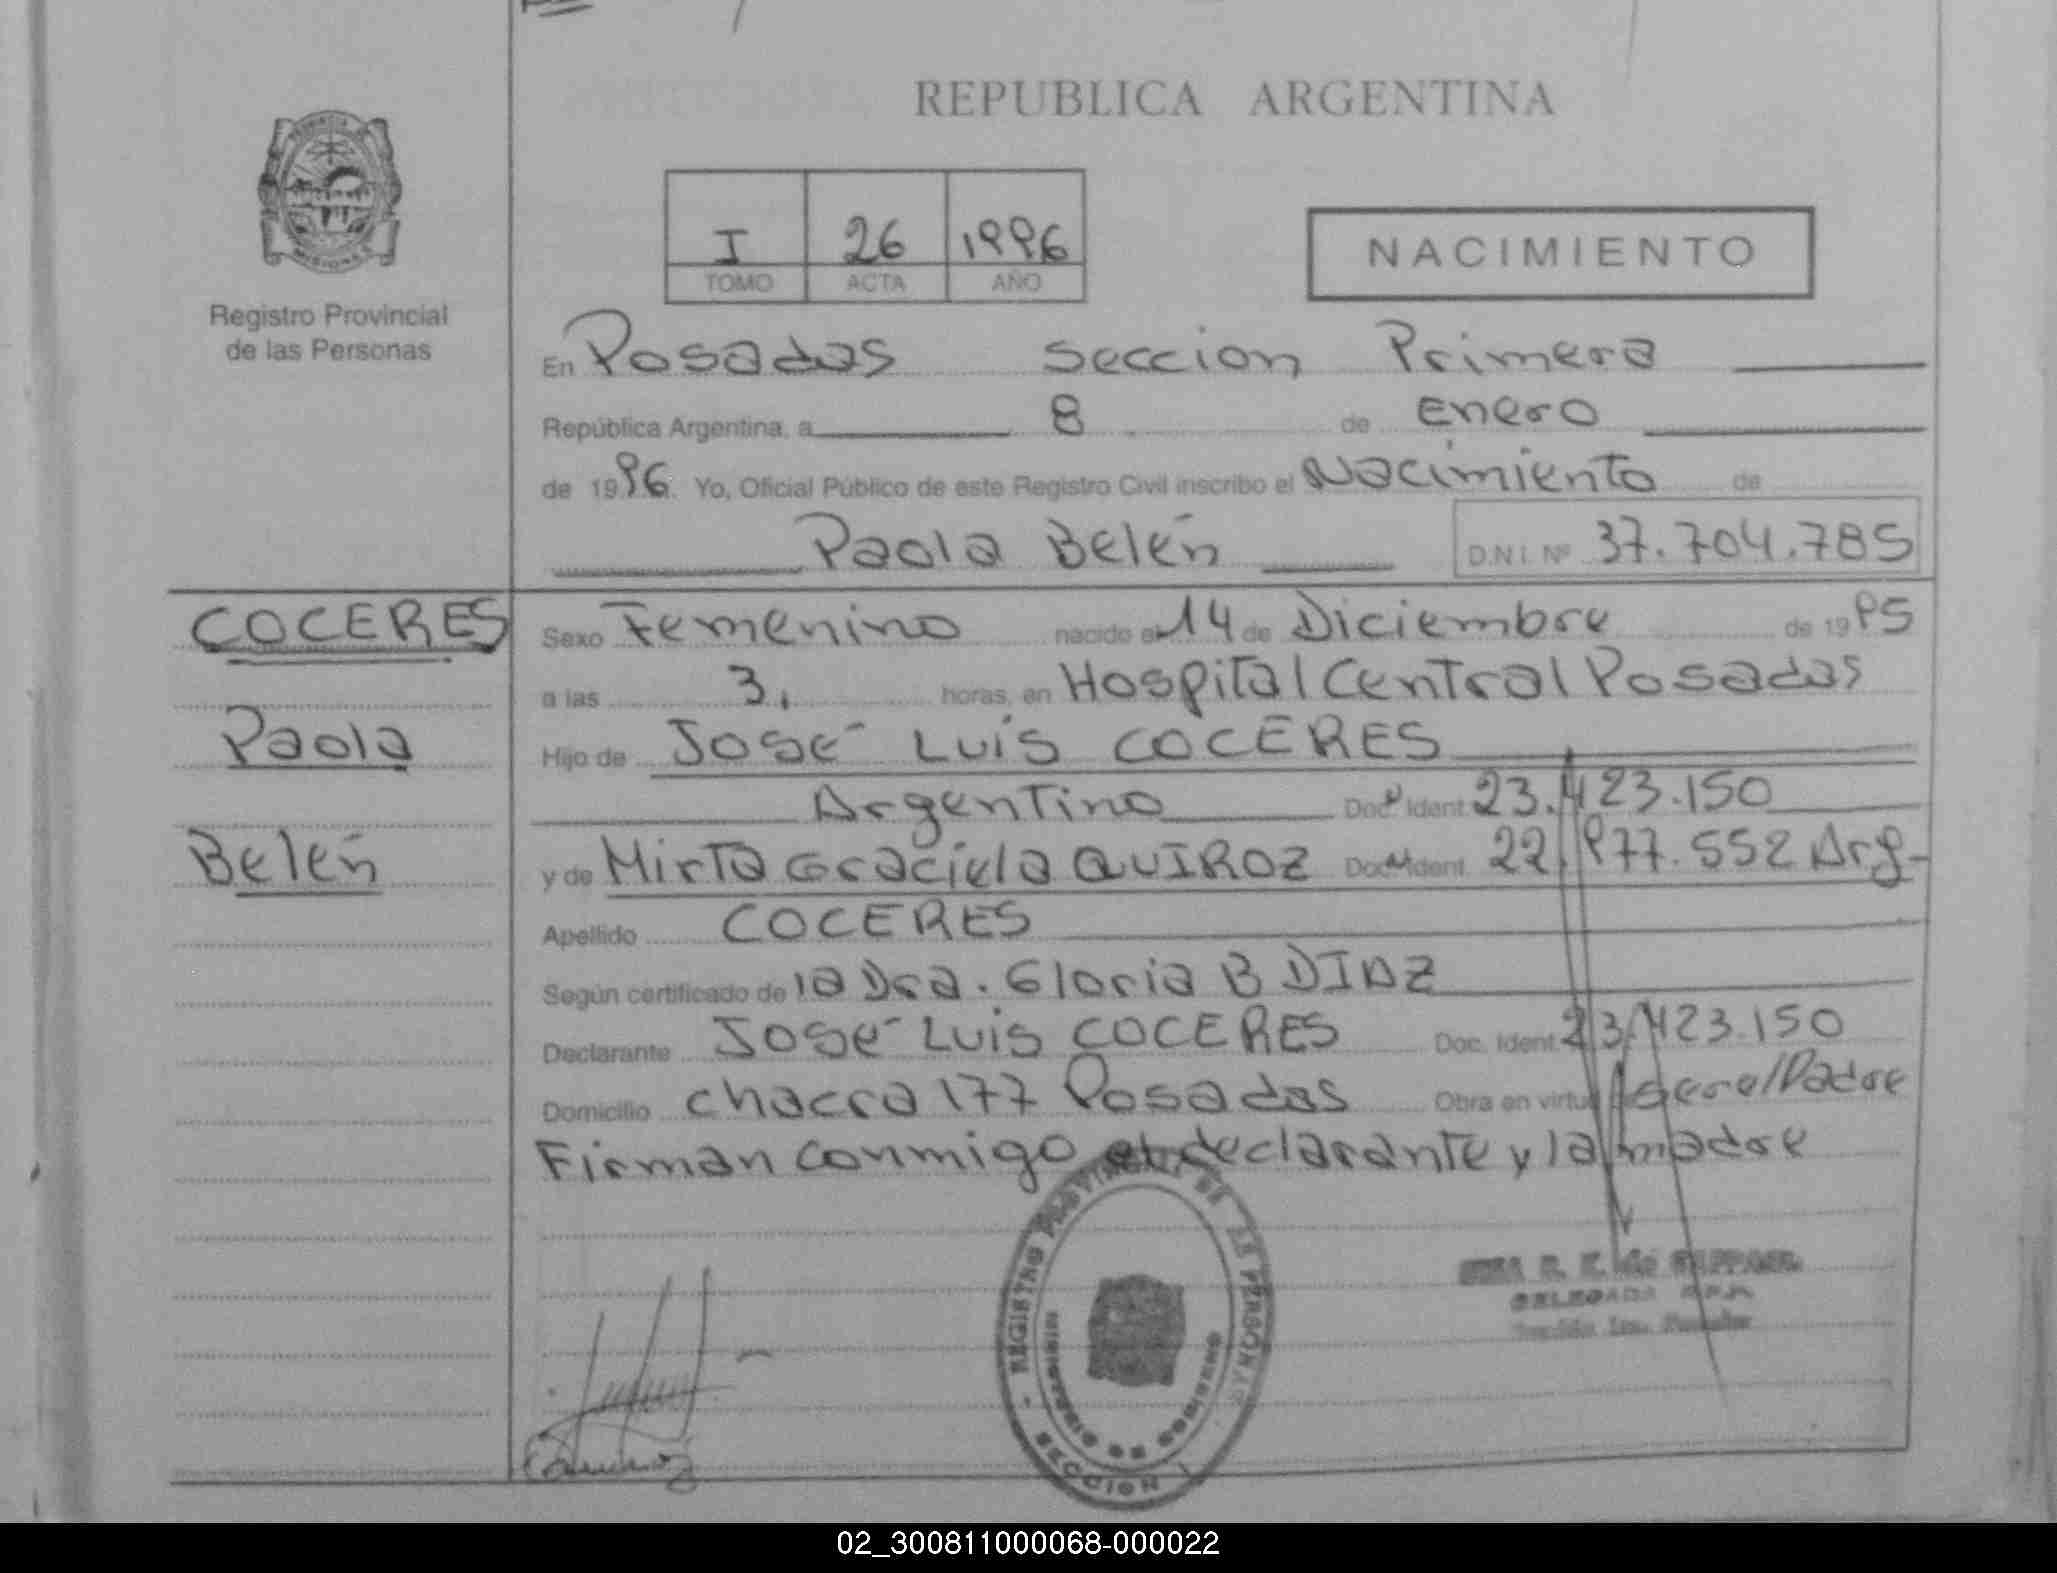 REPUBLICA ARGENTINA
PROVINCIA DE MISIONES
Registro Provincial
de las Personas
I 26 1996
TOMO ACTA AÑO
NACIMIENTO
En Posadas Seccion Primera
República Argentina, a 8 de Enero
de 1996. Yo, Oficial Público de este Registro Civil inscribo el Nacimiento de
Paola Belén D.N.I. Nº 37.704.785
COCERES
Paola
Belén
Sexo Femenino nacido el 14 de Diciembre de 1995
a las 3, horas, en Hospital Central Posadas
Hijo de José Luís COCERES
Argentino Doc. Ident. 23.423.150
y de Mirta Graciela QUIROZ Doc. Ident. 22.977.552 Arg-
Apellido COCERES
Según certificado de la Dra. Gloria B DIAZ
Declarante José Luis COCERES Doc. Ident. 23.423.150
Domicilio Chacra 177 Posadas Obra en virtud de ser el Padre
Firman conmigo el declarante y la madre
REGISTRO PROVINCIAL DE LAS PERSONAS
MINISTERIO DE GOBIERNO
SECCION 1
DELEGADA R.P.P.
02_300811000068-000022